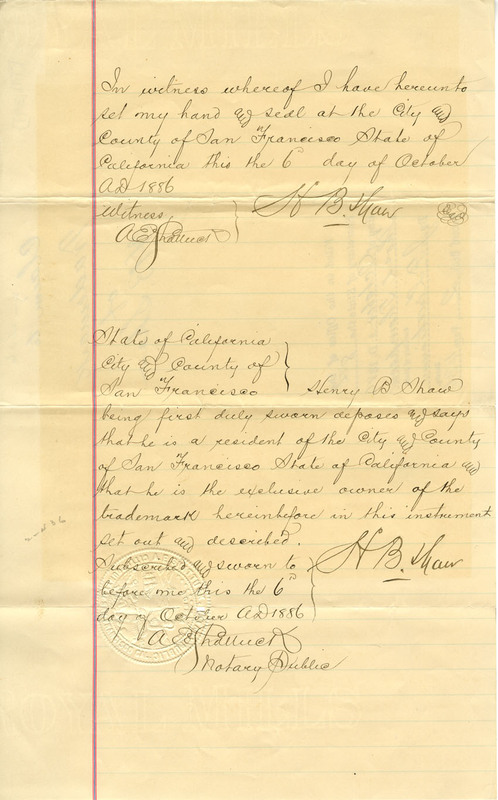 In witness whereof I have hereunto
set my hand and seal at the City and
County of San Francisco State of
California this the 6 day of October
A.D. 1886
Witness
H B. Shaw
State of California
City and County of
San Francisco
Henry B Shaw
being first duly sworn deposes and says
that he is a resident of the City and County
of San Francisco State of California and
that he is the exclusive owner of the
trademark hereinbefore in this instrument
set out and described.
Subscribed and sworn to
before me this the 6th
day of October A.D. 1886
H B. Shaw
Notary Public